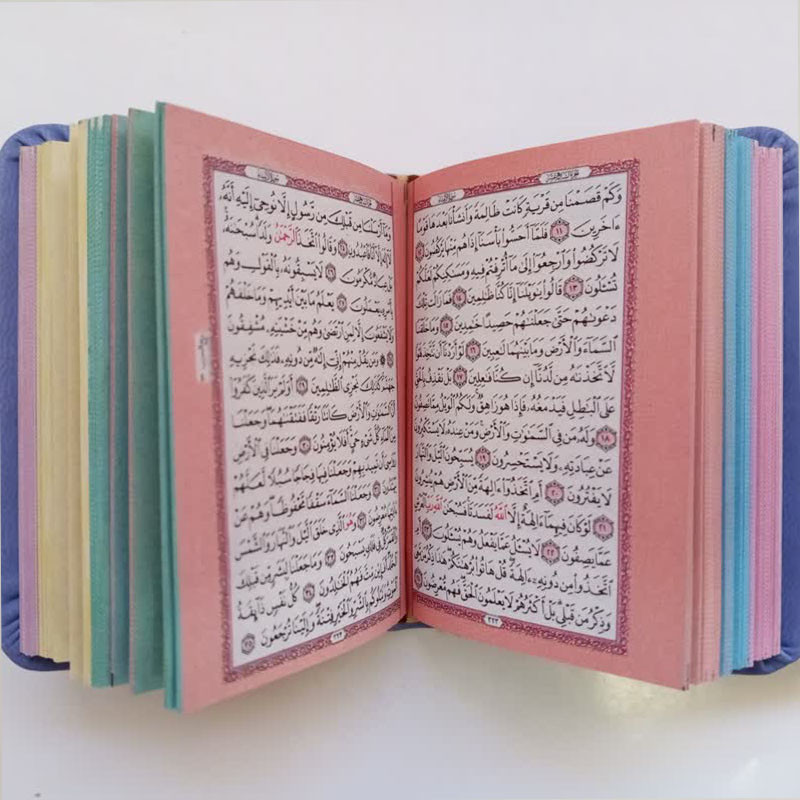 وَكَمْ قَصَمْنَا مِن قَرْيَةٍ كَانَتْ ظَالِمَةً وَأَنشَأْنَا بَعْدَهَا قَوْمًا
ءَاخَرِينَ ١١ فَلَمَّا أَحَسُّوا بَأْسَنَا إِذَاهُم مِنْهَا يَرْكُضُونَ ١٢
لَا تَرْكُضُوا وَارْجِعُوا إِلَى مَا أُتْرِفْتُمْ فِيهِ وَمَسَاكِنِكُمْ لَعَلَّكُمْ
تُسْـَٔلُونَ ١٣ قَالُوا يَاوَيْلَنَا إِنَّا كُنَّا ظَالِمِينَ ١٤ فَمَا زَالَت تِّلْكَ
دَعْوَاهُمْ حَتَّى جَعَلْنَاهُمْ حَصِيدًا خَامِدِينَ ١٥ وَمَا خَلَقْنَا
السَّمَاءَ وَالْأَرْضَ وَمَا بَيْنَهُمَا لَاعِبِينَ ١٦ لَوْ أَرَدْنَا أَن نَّتَّخِذَ لَهْوًا
لَاتَّخَذْنَاهُ مِن لَّدُنَّا إِن كُنَّا فَاعِلِينَ ١٧ بَلْ نَقْذِفُ بِالْحَقِّ
عَلَى الْبَاطِلِ فَيَدْمَغُهُ فَإِذَا هُوَ زَاهِقٌ وَلَكُمُ الْوَيْلُ مِمَّا تَصِفُونَ
١٨ وَلَهُ مَن فِي السَّمَاوَاتِ وَالْأَرْضِ وَمَنْ عِندَهُ لَا يَسْتَكْبِرُونَ
عَنْ عِبَادَتِهِ وَلَا يَسْتَحْسِرُونَ ١٩ يُسَبِّحُونَ اللَّيْلَ وَالنَّهَارَ
لَا يَفْتُرُونَ ٢٠ أَمِ اتَّخَذُوا ءَالِهَةً مِّنَ الْأَرْضِ هُمْ يُنشِرُونَ
٢١ لَوْ كَانَ فِيهِمَا ءَالِهَةٌ إِلَّا اللَّهُ لَفَسَدَتَا فَسُبْحَانَ اللَّهِ رَبِّ الْعَرْشِ
عَمَّا يَصِفُونَ ٢٢ لَا يُسْـَٔلُ عَمَّا يَفْعَلُ وَهُمْ يُسْـَٔلُونَ ٢٣ أَمِ
اتَّخَذُوا مِن دُونِهِ ءَالِهَةً قُلْ هَاتُوا بُرْهَانَكُمْ هَذَا ذِكْرُ مَن مَّعِيَ
وَذِكْرُ مَن قَبْلِي بَلْ أَكْثَرُهُمْ لَا يَعْلَمُونَ الْحَقَّ فَهُم مُّعْرِضُونَ ٢٤
٣٢٣
وَمَا أَرْسَلْنَا مِن قَبْلِكَ مِن رَّسُولٍ إِلَّا نُوحِي إِلَيْهِ أَنَّهُ
لَا إِلَهَ إِلَّا أَنَا فَاعْبُدُونِ ٢٥ وَقَالُوا اتَّخَذَ الرَّحْمَنُ وَلَدًا سُبْحَانَهُ
بَلْ عِبَادٌ مُّكْرَمُونَ ٢٦ لَا يَسْبِقُونَهُ بِالْقَوْلِ وَهُم
بِأَمْرِهِ يَعْمَلُونَ ٢٧ يَعْلَمُ مَا بَيْنَ أَيْدِيهِمْ وَمَا خَلْفَهُمْ
وَلَا يَشْفَعُونَ إِلَّا لِمَنِ ارْتَضَى وَهُم مِّنْ خَشْيَتِهِ مُشْفِقُونَ
٢٨ وَمَن يَقُلْ مِنْهُمْ إِنِّي إِلَهٌ مِّن دُونِهِ فَذَلِكَ نَجْزِيهِ
جَهَنَّمَ كَذَلِكَ نَجْزِي الظَّالِمِينَ ٢٩ أَوَلَمْ يَرَ الَّذِينَ كَفَرُوا
أَنَّ السَّمَاوَاتِ وَالْأَرْضَ كَانَتَا رَتْقًا فَفَتَقْنَاهُمَا وَجَعَلْنَا
مِنَ الْمَاءِ كُلَّ شَيْءٍ حَيٍّ أَفَلَا يُؤْمِنُونَ ٣٠ وَجَعَلْنَا فِي الْأَرْضِ
رَوَاسِيَ أَن تَمِيدَ بِهِمْ وَجَعَلْنَا فِيهَا فِجَاجًا سُبُلًا لَّعَلَّهُمْ
يَهْتَدُونَ ٣١ وَجَعَلْنَا السَّمَاءَ سَقْفًا مَّحْفُوظًا وَهُمْ عَنْ
ءَايَاتِهَا مُعْرِضُونَ ٣٢ وَهُوَ الَّذِي خَلَقَ اللَّيْلَ وَالنَّهَارَ وَالشَّمْسَ
وَالْقَمَرَ كُلٌّ فِي فَلَكٍ يَسْبَحُونَ ٣٣ وَمَا جَعَلْنَا لِبَشَرٍ مِّن قَبْلِكَ
الْخُلْدَ أَفَإِيْن مِّتَّ فَهُمُ الْخَالِدُونَ ٣٤ كُلُّ نَفْسٍ ذَائِقَةُ
الْمَوْتِ وَنَبْلُوكُم بِالشَّرِّ وَالْخَيْرِ فِتْنَةً وَإِلَيْنَا تُرْجَعُونَ ٣٥
٣٢٤